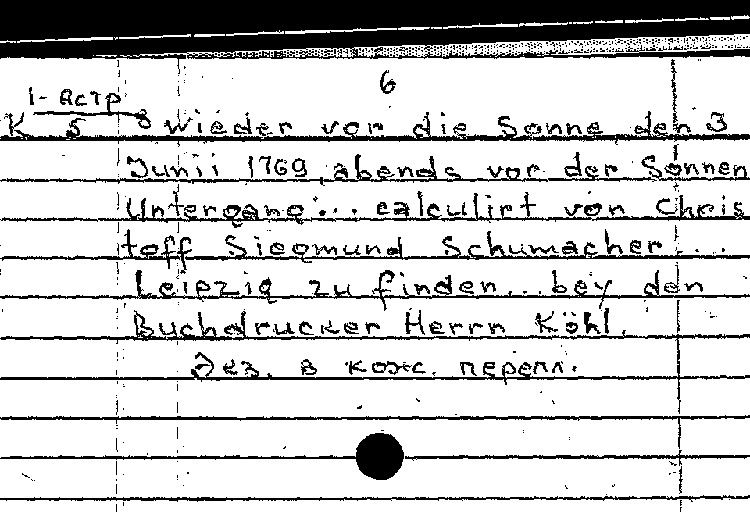 6
1- Астр
K 5 8 wieder vor die Sonne den 3
Junii 1769, abends vor der Sonnen
Untergang... calculirt von Chris
toff Siegmund Schumacher...
Leipzig zu finden... bey den
Buchdrucker Herrn Köhl.
Экз. в кож. перепл.